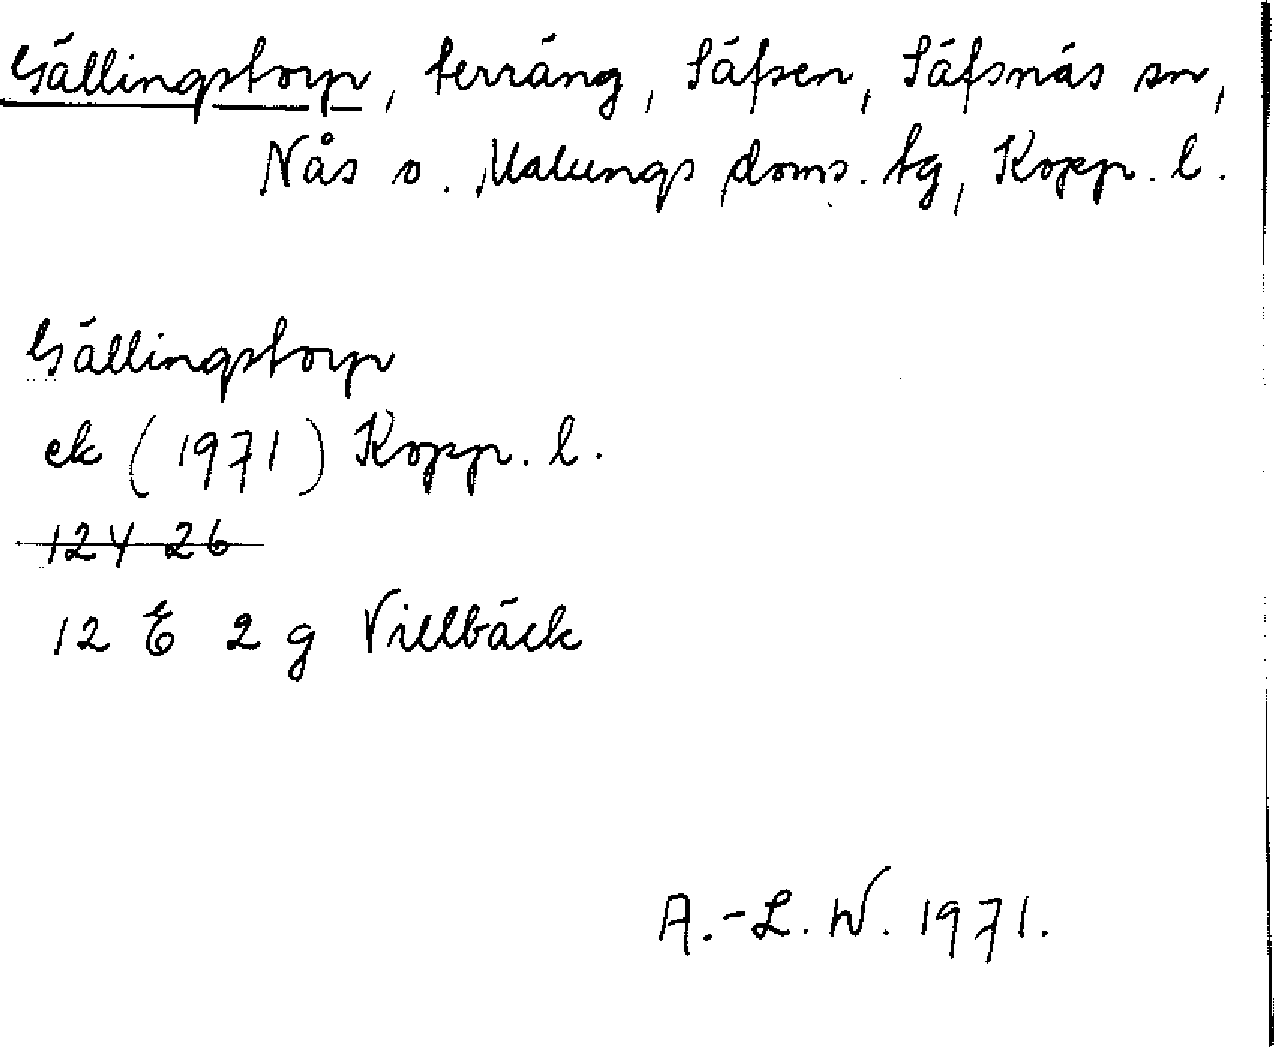 Gällingstorp, terräng, Säfsen, Säfsnäs sn,
Nås o. Malungs doms. tg, Kopp. l.
Gällingstorp
ek (1971) Kopp. l.
124 26
12 E 2 g Villbäck
A.-L. W. 1971.